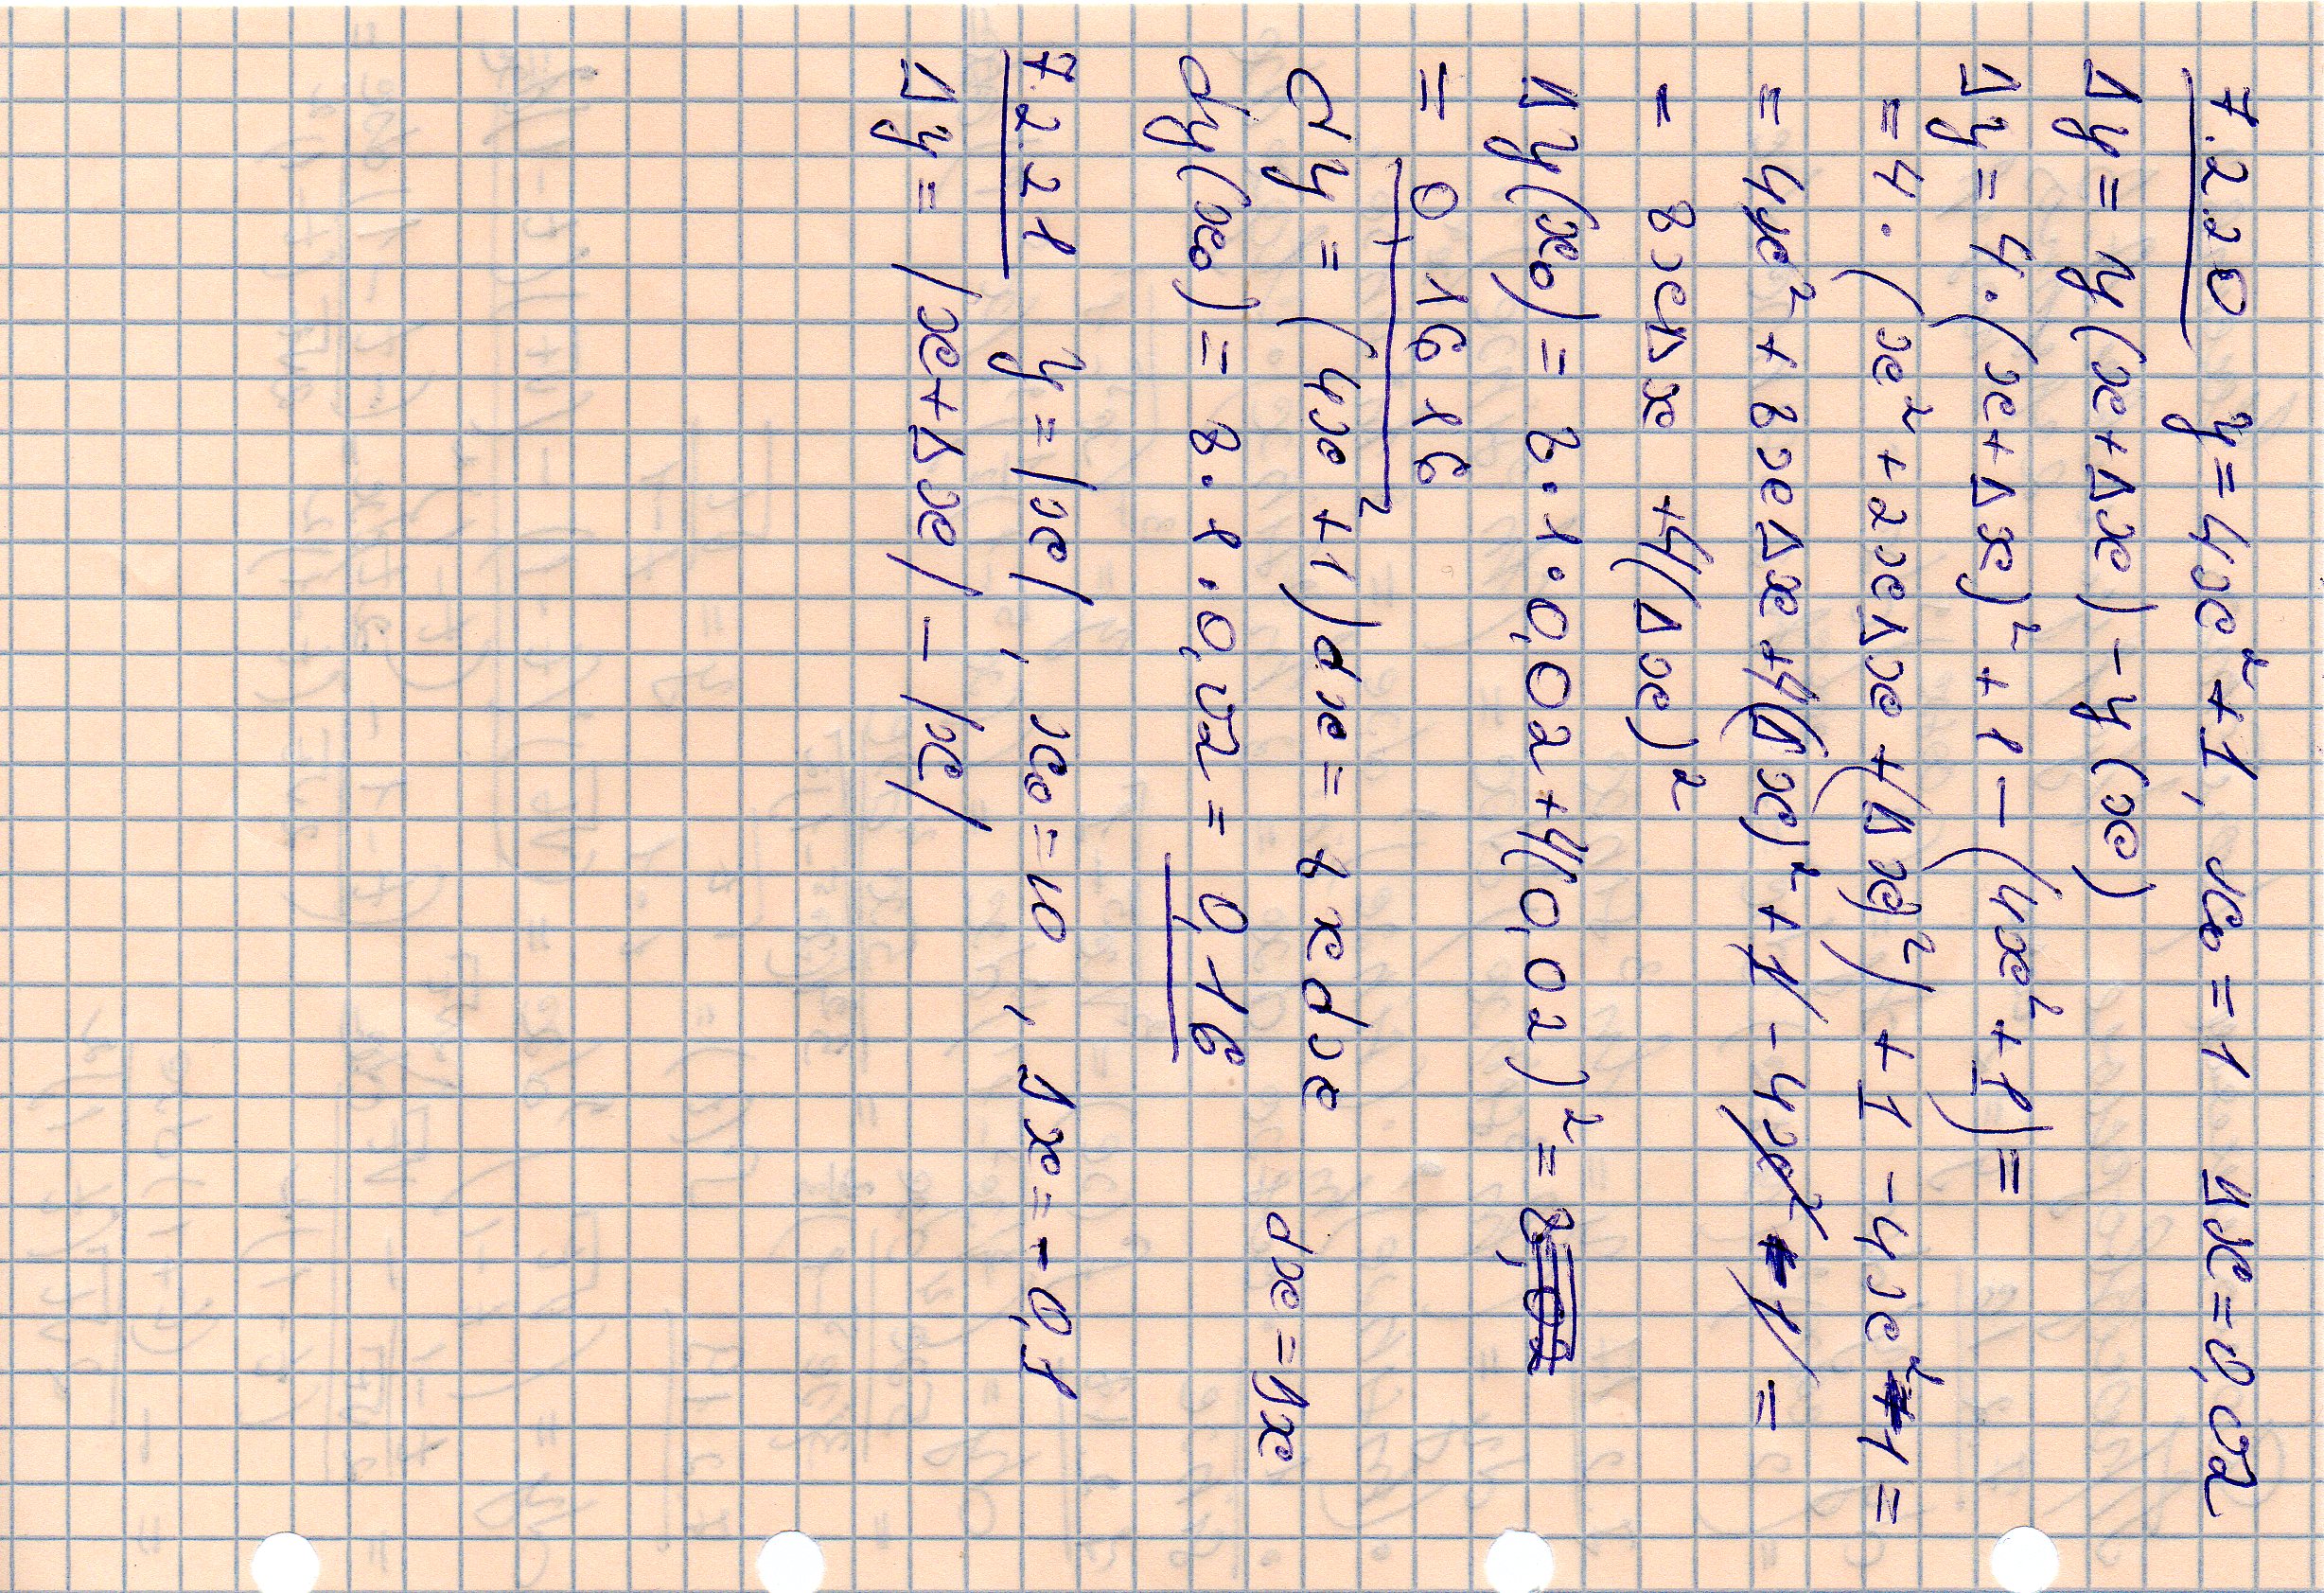 7.2.20 y = 4x² + 1, x₀ = 1 Δx = 0,02
Δy = y(x+Δx) - y(x)
Δy = 4·(x+Δx)² + 1 - (4x² + 1) =
= 4·(x² + 2xΔx + (Δx)²) + 1 - 4x² - 1 =
= 4x² + 8xΔx + 4(Δx)² + 1 - 4x² - 1 =
= 8xΔx + 4(Δx)²
Δy(x₀) = 8·1·0,02 + 4(0,02)² = 8,02
= 0,1616
dy = (4x² + 1)dx = 8xdx dx = Δx
dy(x₀) = 8·1·0,02 = 0,16
7.2.21 y = |x|, x₀ = 10, Δx = -0,1
Δy = |x+Δx| - |x|